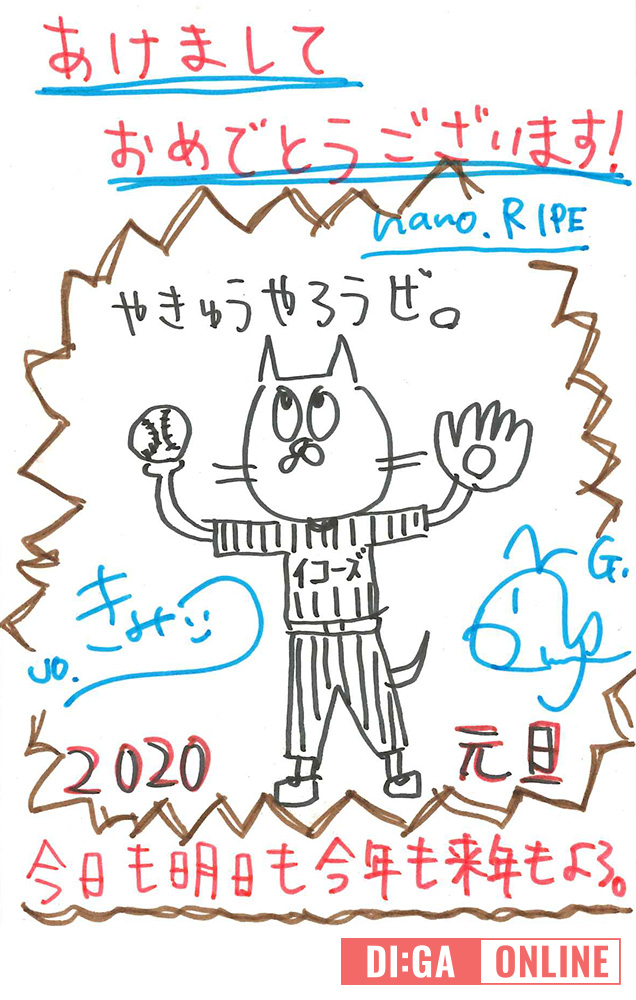 あけまして
おめでとうございます!
nano.RIPE
やきゅうやろうぜ。
イコーズ
きみコ
vo.
G.
2020 元旦
今日も明日も今年も来年もよろ。
DI:GA ONLINE